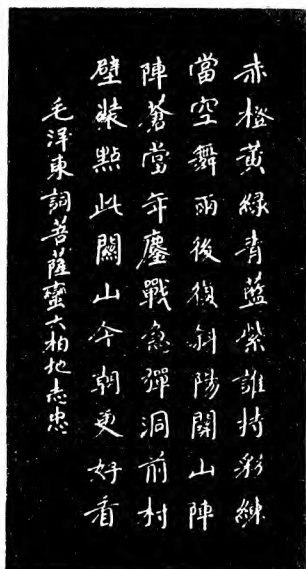 赤橙黃綠青藍紫誰持彩練
當空舞雨後復斜陽關山陣
陣蒼當年鏖戰急彈洞前村
壁裝點此關山今朝更好看
毛泽東詞菩薩蠻大柏地志忠